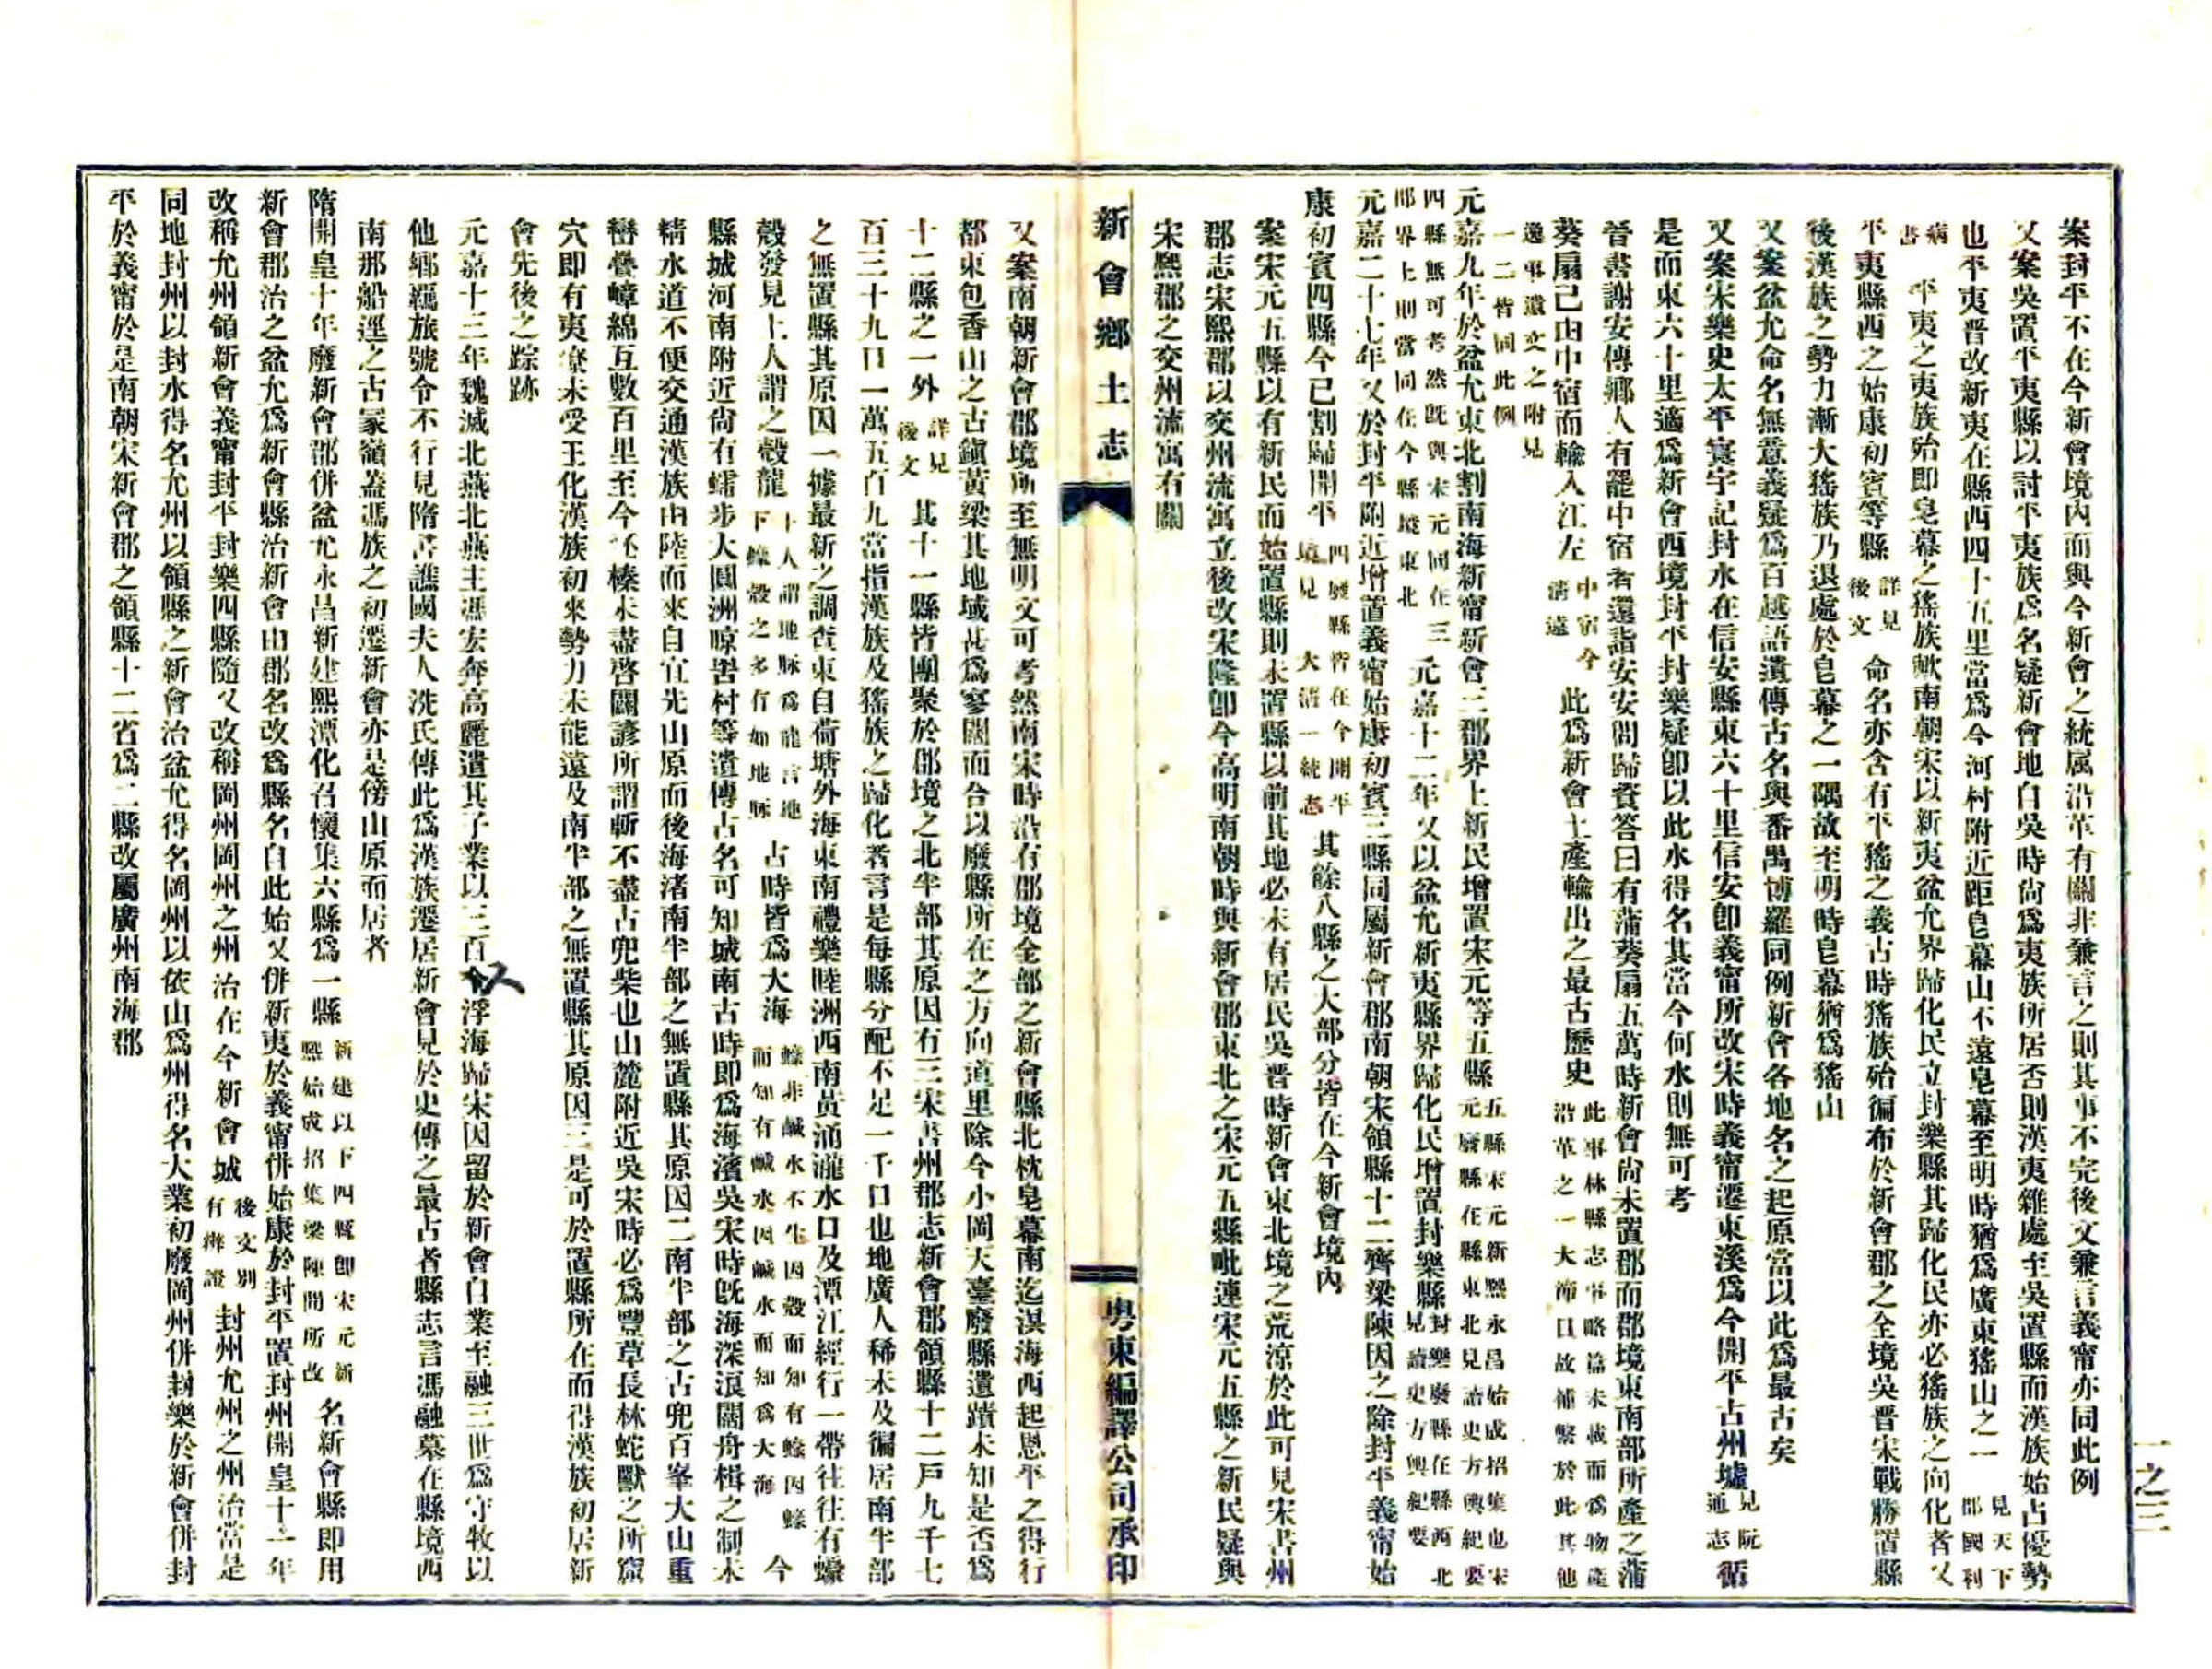 案封平不在今新會境內而與今新會之統屬沿革有關非兼言之則其事不完後文兼言義甯亦同此例
又案吳置平夷縣以討平夷族爲名疑新會地自吳時尙爲夷族所居否則漢夷雜處至吳置縣而漢族始占優勢
也平夷晉改新夷在縣西四十五里當爲今河村附近距皂幕山不遠皂幕至明時猶爲廣東猺山之一見天下郡國利
病書 平夷之夷族殆即皂幕之猺族歟南朝宋以新夷盆允界歸化民立封樂縣其歸化民亦必猺族之向化者又
平夷縣西之始康初賓等縣詳見後文命名亦含有平猺之義古時猺族殆徧布於新會郡之全境吳晉宋戰勝置縣
後漢族之勢力漸大猺族乃退處於皂幕之一隅故至明時皂幕猶爲猺山
又案盆允命名無意義疑爲百越語遺傳古名與番禺博羅同例新會各地名之起原當以此爲最古矣
又案宋樂史太平寰宇記封水在信安縣東六十里信安卽義甯所改宋時義甯遷東溪爲今開平古州墟見阮通志循
是而東六十里適爲新會西境封平封樂疑卽以此水得名其當今何水則無可考
晉書謝安傳鄉人有罷中宿者還詣安安問歸資答曰有蒲葵扇五萬時新會尙未置郡而郡境東南部所產之蒲
葵扇已由中宿而輸入江左中宿今淸遠此爲新會土產輸出之最古歷史此事林縣志事略篇未載而爲物產沿革之一大節目故補繫於此其他
逸事遺文之附見一二皆同此例
元嘉九年於盆允東北割南海新甯新會三郡界上新民增置宋元等五縣五縣宋元新熙永昌始成招集也宋元廢縣在縣東北見讀史方輿紀要
四縣無可考然旣與宋元同在三郡界上則當同在今縣境東北元嘉十二年又以盆允新夷縣界歸化民增置封樂縣封樂廢縣在縣西北見讀史方輿紀要
元嘉二十七年又於封平附近增置義甯始康初賓三縣同屬新會郡南朝宋領縣十二齊梁陳因之除封平義甯始
康初賓四縣今已割歸開平四廢縣皆在今開平境見大淸一統志其餘八縣之大部分皆在今新會境內
案宋元五縣以有新民而始置縣則未置縣以前其地必未有居民吳晉時新會東北境之荒凉於此可見宋書州
郡志宋熙郡以交州流寓立後改宋隆卽今高明南朝時與新會郡東北之宋元五縣毗連宋元五縣之新民疑與
宋熙郡之交州流寓有關
新會鄉土志
粤東編譯公司承印
一之三
又案南朝新會郡境所至無明文可考然南宋時沿有郡境全部之新會縣北枕皂幕南迄溟海西起恩平之得行
都東包香山之古鎭黃梁其地域甚爲寥闊而合以廢縣所在之方向道里除今小岡天臺廢縣遺蹟未知是否爲
十二縣之一外詳見後文其十一縣皆團聚於郡境之北半部其原因有三宋書州郡志新會郡領縣十二戶九千七
百三十九口一萬五百九當指漢族及猺族之歸化者言是每縣分配不足一千口也地廣人稀未及徧居南半部
之無置縣其原因一據最新之調查東自荷塘外海東南禮樂睦洲西南黃涌瀧水口及潭江經行一帶往往有蠔
殼發見土人謂之殼龍土人謂地脉爲龍言地下蠔殼之多有如地脉古時皆爲大海蠔非鹹水不生因殼而知有蠔因蠔而知有鹹水因鹹水而知爲大海今
縣城河南附近尙有蠕步大圓洲晾罟村等遺傳古名可知城南古時即爲海濱吳宋時旣海深浪闊舟楫之制未
精水道不便交通漢族由陸而來自宜先山原而後海渚南半部之無置縣其原因二南半部之古兜百峯大山重
巒疊嶂綿互數百里至今丕榛未盡啓闢諺所謂斬不盡古兜柴也山麓附近吳宋時必爲豐草長林蛇獸之所窟
穴即有夷獠未受王化漢族初來勢力未能遠及南半部之無置縣其原因三是可於置縣所在而得漢族初居新
會先後之踪跡
元嘉十三年魏滅北燕北燕主馮宏奔高麗遣其子業以三百人浮海歸宋因留於新會自業至融三世爲守牧以
他鄕羈旅號令不行見隋書譙國夫人冼氏傳此爲漢族遷居新會見於史傳之最古者縣志言馮融墓在縣境西
南那船逕之古冢嶺蓋馮族之初遷新會亦是傍山原而居者
隋開皇十年廢新會郡併盆允永昌新建熙潭化召懷集六縣爲一縣新建以下四縣卽宋元新熙始成招集梁陳間所改名新會縣即用
新會郡治之盆允爲新會縣治新會由郡名改爲縣名自此始又併新夷於義甯併始康於封平置封州開皇十一年
改稱允州領新會義甯封平封樂四縣隨又改稱岡州岡州之州治在今新會城後文別有辨證封州允州之州治當是
同地封州以封水得名允州以領縣之新會治盆允得名岡州以依山爲州得名大業初廢岡州併封樂於新會併封
平於義甯於是南朝宋新會郡之領縣十二省爲二縣改屬廣州南海郡